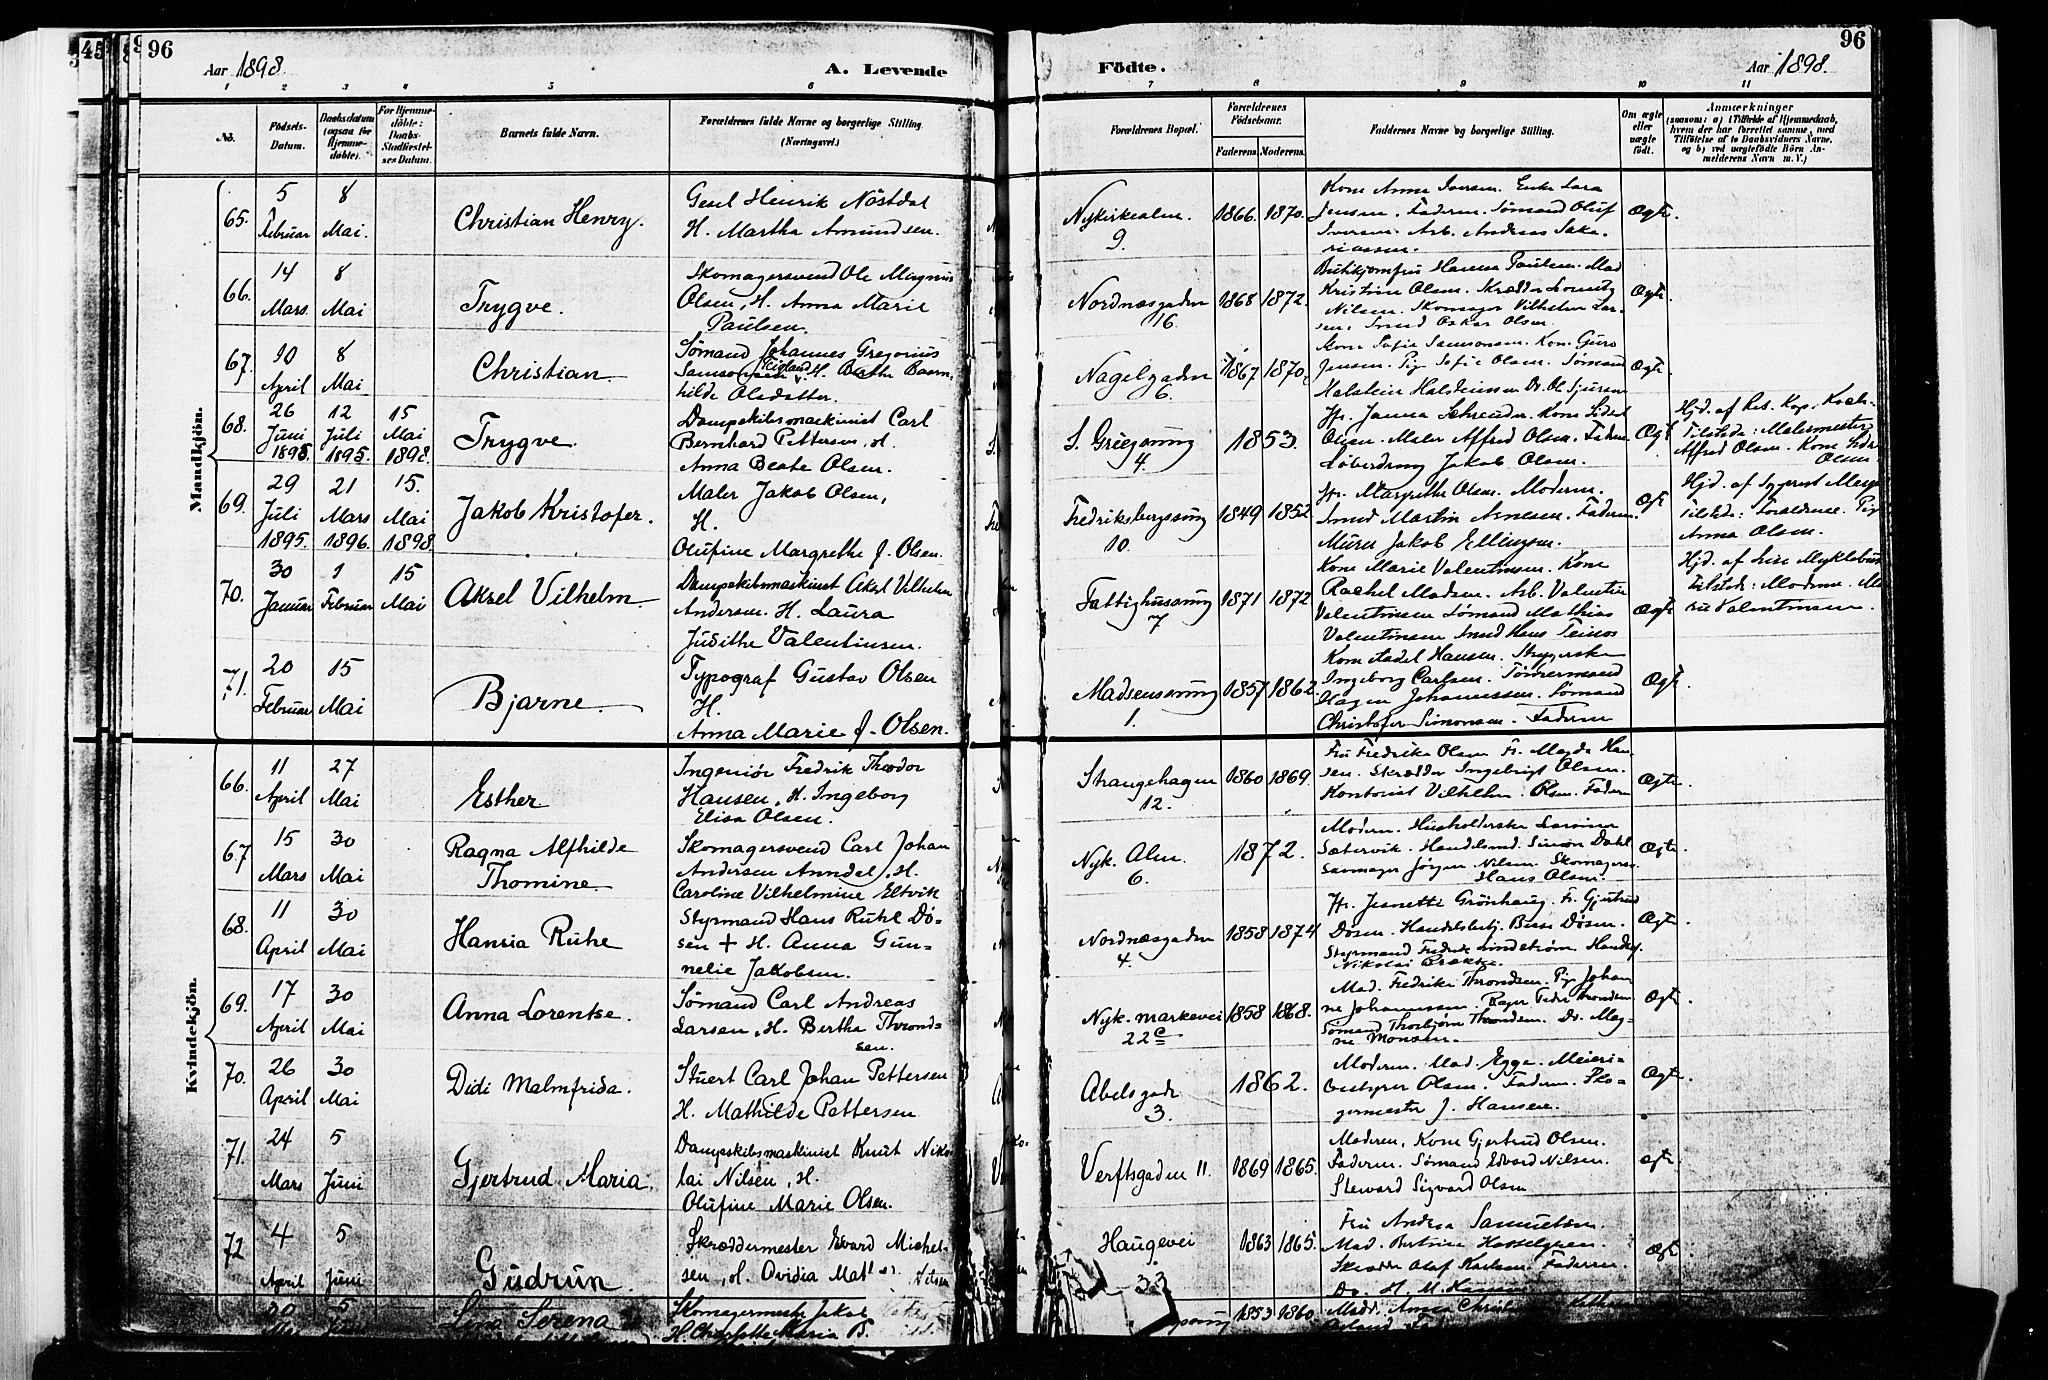 96
Aar 1898.
A. Levende
Födte.
96
Aar 1898.
1 2 3 4 5 6 7 8 9 10 11
No.
Födsels-
Datum.
Daabsdatum
(ogsaa for
Hjemme-
døbte).
For Hjemme-
døbte:
Daabs-
Stadfæstel-
ses Datum.
Barnets fulde Navn.
Forældrenes fulde Navne og borgerlige Stilling.
(Næringsvei.)
Forældrenes Bopæl.
Forældrenes
Födselsaar.
Faderens. Moderens.
Faddernes Navne og borgerlige Stilling.
Om ægte
eller
uægte
født.
Anmærkninger
(saasom: a) i Tilfælde af Hjemmedaab,
hvem der har forrettet samme, med
Tilföielse af to Daabsvidners Navne,
og b) ved uægtefödte Börn An-
melderens Navn m. V.)
Mandkjön.
65. 5 Februar 8 Mai. Christian Henry.
Henrik Nästdal
H. Martha Amundsen.
Nykirkealm. 9. 1866. 1870.
Kone Anna Iversen. Enke Lara
Jensen. Faderen. Sømand Oluf
Iversen. Arb. Andreas Saka-
riassen.
Ægte.
66. 14 Mars. 8 Mai Trygve.
Skomagersvend Ole Magnus
Olsen, H. Anna Marie
Paulsen.
Nordnæsgaden 16. 1868 1872.
Butikjomfru Hanna Paulsen. Mad.
Kristine Olsen. Skrædder Lorentz
Nilsen. Skomager Vilhelm Lar-
sen. Snedk. Oskar Olsen.
Ægte
67. 10 April 8 Mai Christian.
Sømand Johannes Gregorius
Samsonsen H. Berthe Bæren-
hilde Olsdatter.
Nagelgaden 6. 1867 1870.
Kone Sofie Samsonsen. Kone Guro
Jensen. Pige Sofie Olsen. Sømand
Halstein Halsteinsen. Do. Ole Sjursen
Ægte.
68. 26 Juni 1895. 12 Juli 1895. 15 Mai 1898. Trygve.
Dampskibsmaskinist Carl
Bernhard Pettersen, H.
Anna Beate Olsen.
S. Griegsmug 4. 1853.
Jfr. Janna Schreuder. Kone Sidsel
Olsen. Maler Alfred Olsen. Faderen.
Løberdreng Jakob Olsen.
Ægte
Hjd. af Res. Kap. Koch.
Tilstede: Malermester
Alfred Olsen. Kone Sidsel
Olsen.
69. 29 Juli 1895. 21 Mars 1896. 15. Mai 1898. Jakob Kristofer.
Maler Jakob Olsen,
H.
Olufine Margrethe J. Olsen.
Fredriksbergssmug 10. 1849 1852.
Jfr. Margrethe Olsen. Moderen.
Snedk. Martin Arnesen. Faderen.
Murer Jakob Ellingsen.
Ægte
Hjd. af Sygeprest
Tilstede: Forældrene. Pige
Anna Olsen.
70. 30 Januar 1 Februar 15 Mai Aksel Vilhelm.
Dampskibsmaskinist Aksel Vilhelm
Andersen. H. Laura
Judithe Valentinsen.
Fattighussmug 7 1871 1872
Kone Marie Valentinsen. Kone
Rachel Madsen. Arb. Valentin
Valentinsen Sømand Mathias
Valentinsen Snedk. Hans
Ægte
Hjd. af Myklebust
Tilstede: Moderen. Ma-
rie Valentinsen.
71. 20 Februar 15 Mai Bjarne.
Typograf Gustav Olsen
H.
Anna Marie J. Olsen.
Madsenssmug 1. 1857 1862.
Kone Adel Hansen. Strygerske
Ingeborg Carlsen. Tømmermand
Hagen Johannessen. Sømand
Christofer Simonsen. Faderen
Ægte.
Kvindekjön.
66. 11 April 27 Mai Esther.
Ingeniör Fredrik Theodor
Hansen, H. Ingeborg
Elisa Olsen.
Strangehagen 12. 1860 1869.
Fru Fredrikke Olsen Fr. Magda Han-
sen. Skrædder Ingebrigt Olsen.
Kontorist Vilhelm Olsen. Faderen
Ægte.
67 15 Mars 30 Mai Ragna Alfhilde
Thomine.
Skomagersvend Carl Johan
Andersen Anndal, H.
Caroline Vilhelmine Eltvik
Nyk. Alm. 6. 1872.
Moderen. Husholderske
Sætervik. Handlsmd. Simon Dahl
Savmager Jørgen Nilsen. Skomagersv.
Hans Olsen.
Ægte.
68. 11 April 30 Mai Hansia Ruhe
Styrmand Hans Ruhl Dø-
sen + H. Anna Gun-
nelie Jakobsen.
Nordnæsgaden 4. 1858 1874
Jfr. Jeanette Grönhaug. Fr. Gjertrud
Døsen. Handelsbetj. Døsen.
Styrmand Fredrik Lindstrøm. Handelsf.
Nikolai
Ægte.
69. 17 April 30 Mai Anna Lorentse.
Sømand Carl Andreas
Larsen, H. Bertha Thrond-
sen.
Nyk. markevei 22c 1858 1868.
Mad. Fredrikke Throndsen. Pige Johan-
ne Johannessen. Throndsen
Sømand Thorbjørn Throndsen. Do. Mag-
ne Monsen.
Ægte.
70. 26 April 30 Mai Didi Malmfrida.
Stuert Carl Johan Pettersen
H. Mathilde Pettersen
Abelsgade 3. 1862.
Moderen. Mad. Egge. Meieri-
bestyrer Olsen. Faderen. Sko-
germester J. Hansen.
Ægte.
71. 24 Mars 5 Juni Gjertrud Maria.
Dampskibsmaskinist Knut Niko-
lai Nilsen, H.
Olufine Marie Olsen.
Verftsgaden 11. 1869 1865.
Moderen, Kone Gjertrud Olsen.
Faderen. Sømand Edvard Nilsen.
Steward Sigvard Olsen
ægte.
72 4 April 5 Juni Gudrun.
Skræddermester Edvard Michel-
sen, H. Ovidia Nilsen
Haugevei 33 1863 1865.
Fru Andrea Samuelsen.
Mad. Hasselgren.
Skrædder Olaf Karlsen. Faderen.
Do. H. M. Hansen
Ægte.
20 5 Lina Serena
Skomagermester Jakob
H. Charlotte Maria
1853 1860
Madd. Anna